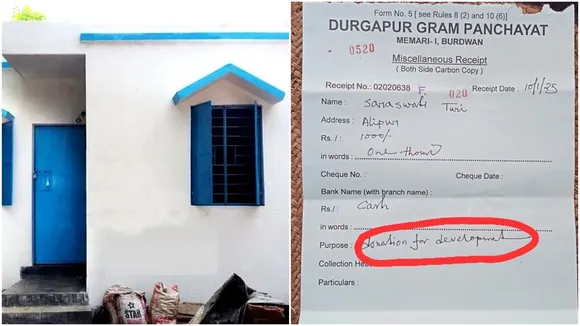 STAR
Form No. 5 [ see Rules 8 (2) and 10 (6)]
DURGAPUR GRAM PANCHAYAT
MEMARI- I, BURDWAN
0520
Miscellaneous Receipt
( Both Side Carbon Copy )
Receipt No.: 02020638 020 Receipt Date : 10/1/25
Name : Saraswati Turi
Address : Alipur
Rs./ : 1000/-
in words : One thousand
Cheque No. : Cheque Date :
Bank Name (with branch name) :
Rs./ : Cash
in words :
Purpose : donation for development
Collection Hea
Particulars :